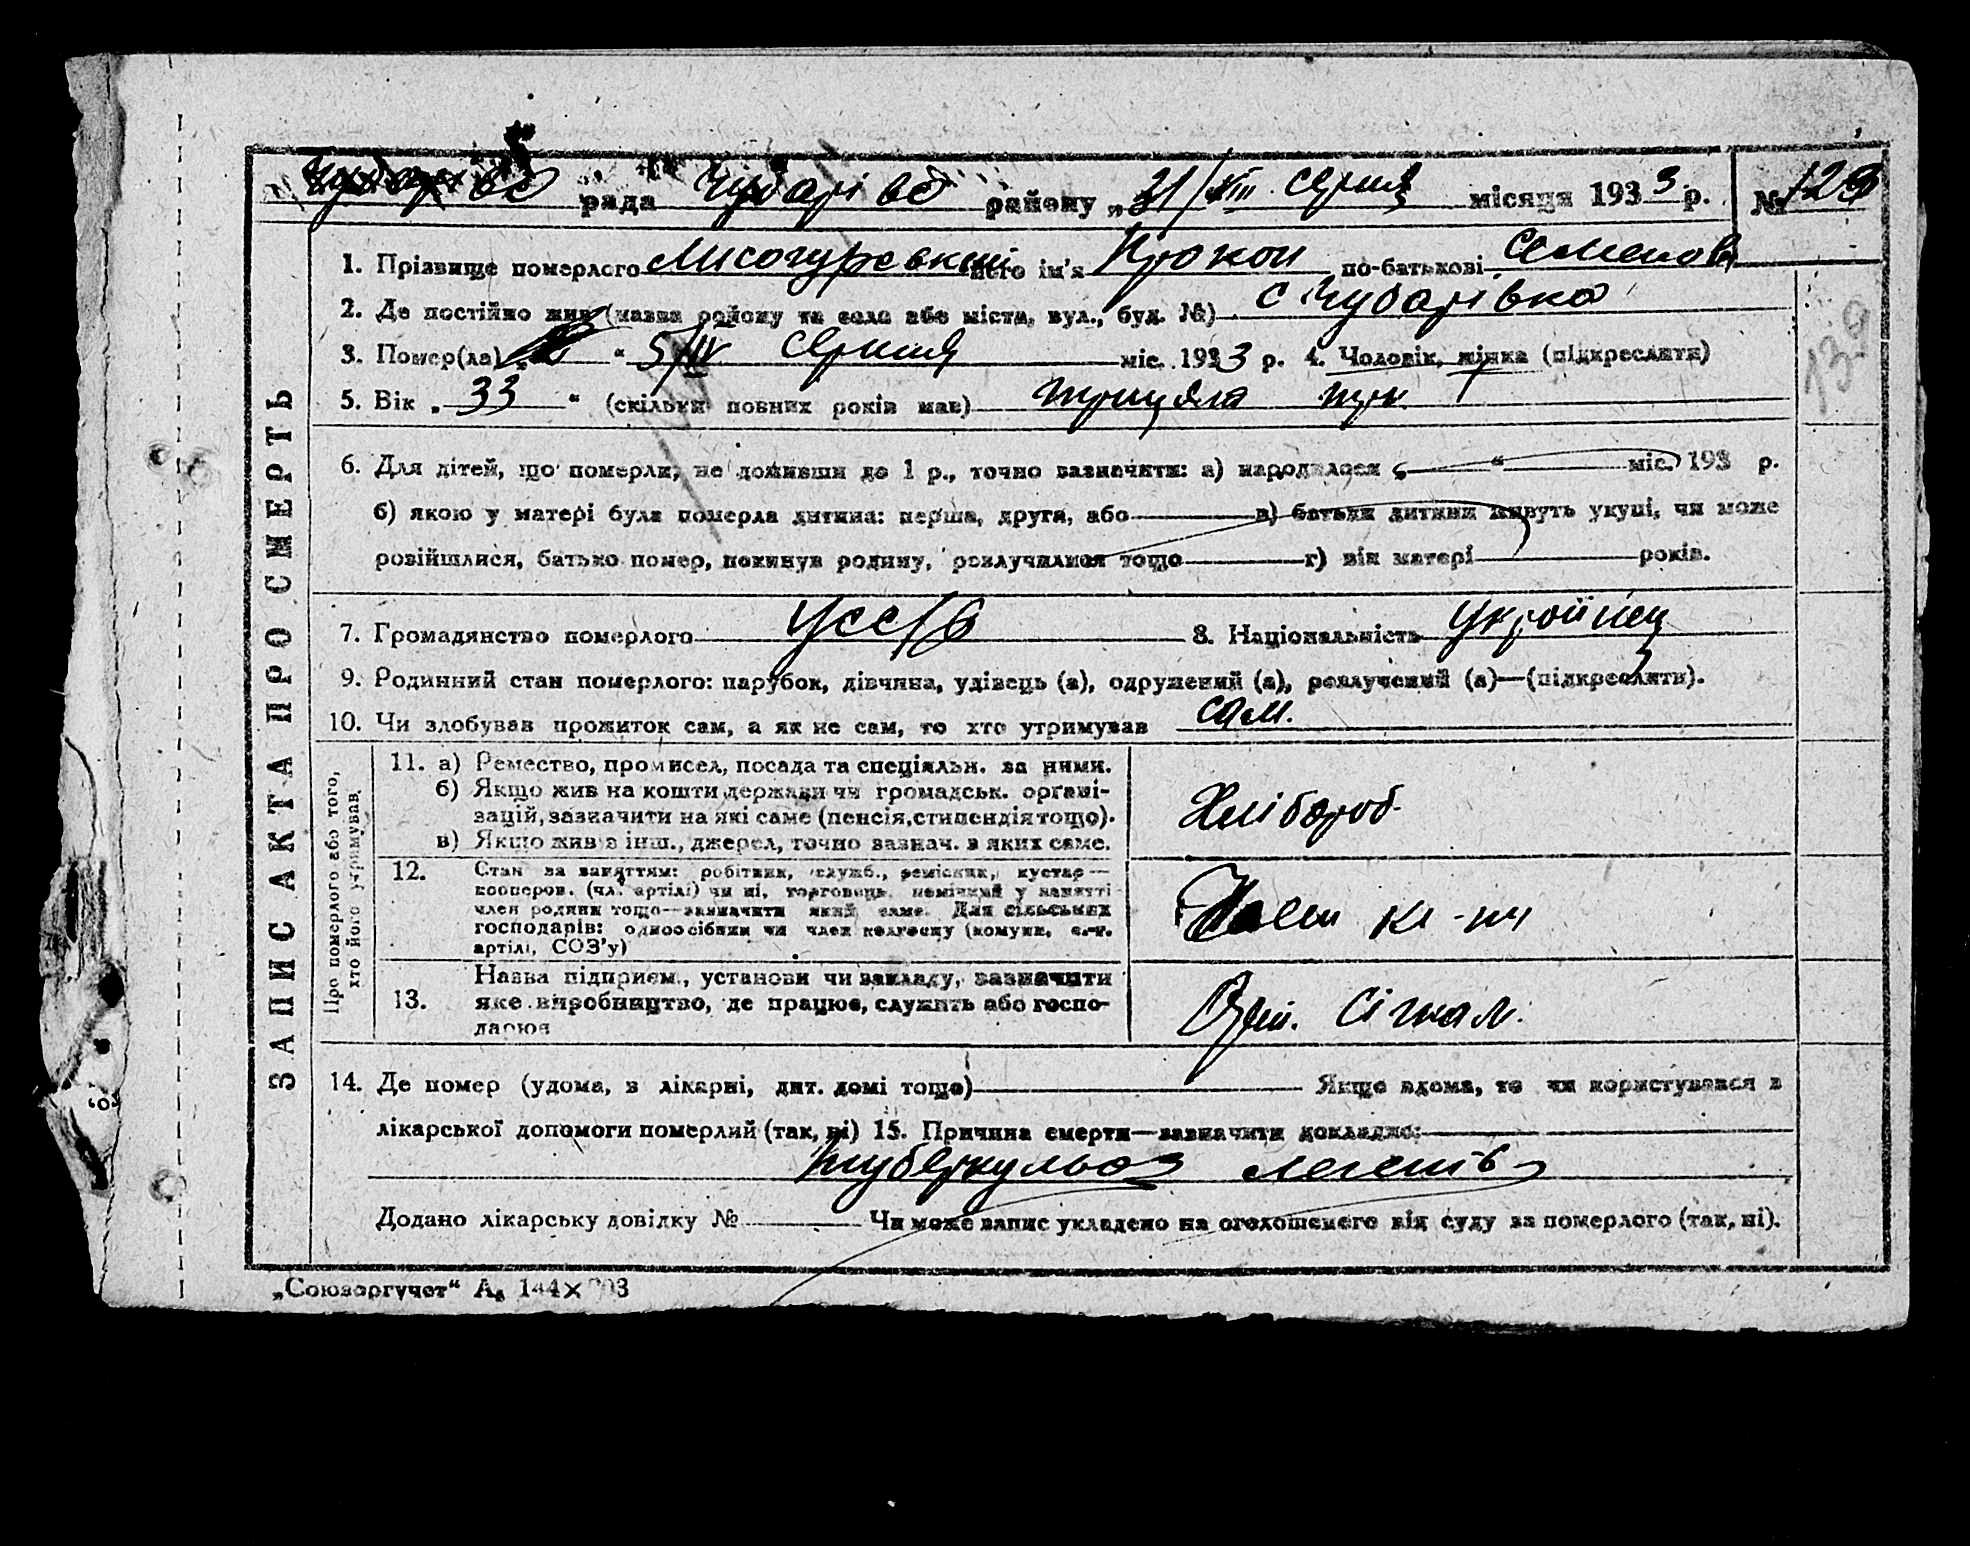 Чубарівс рада Чубарівс району „31/VIII серпня місяця 1933 р. № 123
1. Прізвище померлого Лисогурський його ім'я Прокоп по-батькові Семенов
2. Де постійно жив (назва району та села або міста, вул., буд. №) с Чубарівка
3. Помер(ла) „ “ 5/IV серпня міс. 1933 р. 4. Чоловік, жінка (підкреслити)
139
5. Вік „ 33 “ (скільки повних років мав) трицять три
6. Для дітей, що померли, не доживши до 1 р., точно зазначити: а) народилося „ “ міс. 193 р.
б) якою у матері була померла дитина: перша, друга, або в) батьки дитини живуть укупі, чи може
розійшлися, батько помер, покинув родину, розлучилися тощо г) вік матері років.
7. Громадянство померлого 8. Національність Українец
9. Родинний стан померлого: парубок, дівчина, удівець (а), одружений (а), розлучений (а)—(підкреслити).
10. Чи здобував прожиток сам, а як не сам, то хто утримував сам.
ЗАПИС АКТА ПРО СМЕРТЬ
Про померлого або того, хто його утримував
11. а) Ремество, промисел, посада та спеціяльн. за ними.
б) Якщо жив на кошти держави чи громадськ. органі-
зацій, зазначити на які саме (пенсія, стипендія тощо).
в) Якщо жив з інш., джерел, точно зазнач. з яких саме.
Хлібороб
12. Стан за заняттям: робітник, служб., ремісник, кустар—
кооперов. (чл. артілі) чи ні, торговець, помічний у занятті
член родини тощо—зазначити який саме. Для сільських
господарів: одноосібник чи член колгоспу (комуни, с.-г.
артілі, СОЗ'у)
13. Назва підприєм., установи чи закладу, зазначити
яке виробництво, де працює, служить або госпо-
дарює
Сігнал.
14. Де помер (удома, в лікарні, дит. домі тощо) Якщо вдома, то чи користувався з
лікарської допомоги померлий (так, ні) 15. Причина смерти—зазначити докладно:
туберкульоз легенів
Додано лікарську довідку № Чи може запис укладено на оголошеного від суду за померлого (так, ні).
„Союзоргучет“